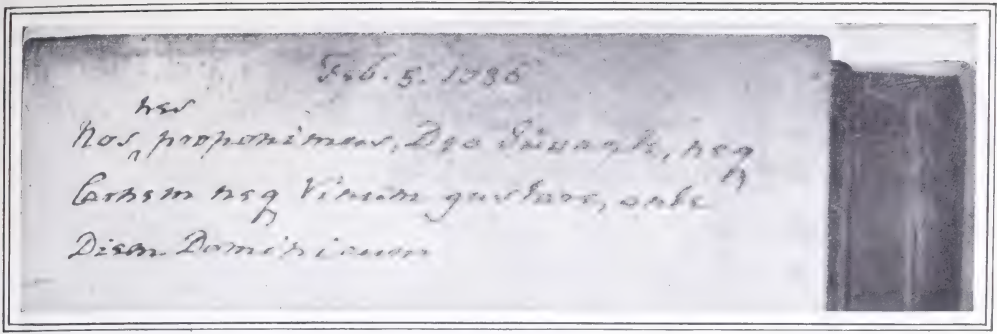 Feb. 5. 1736
nos
Nos proponimus, Deo Juvante, neq
Carnem neq Vinum gustare, ante
Diem Dominicum